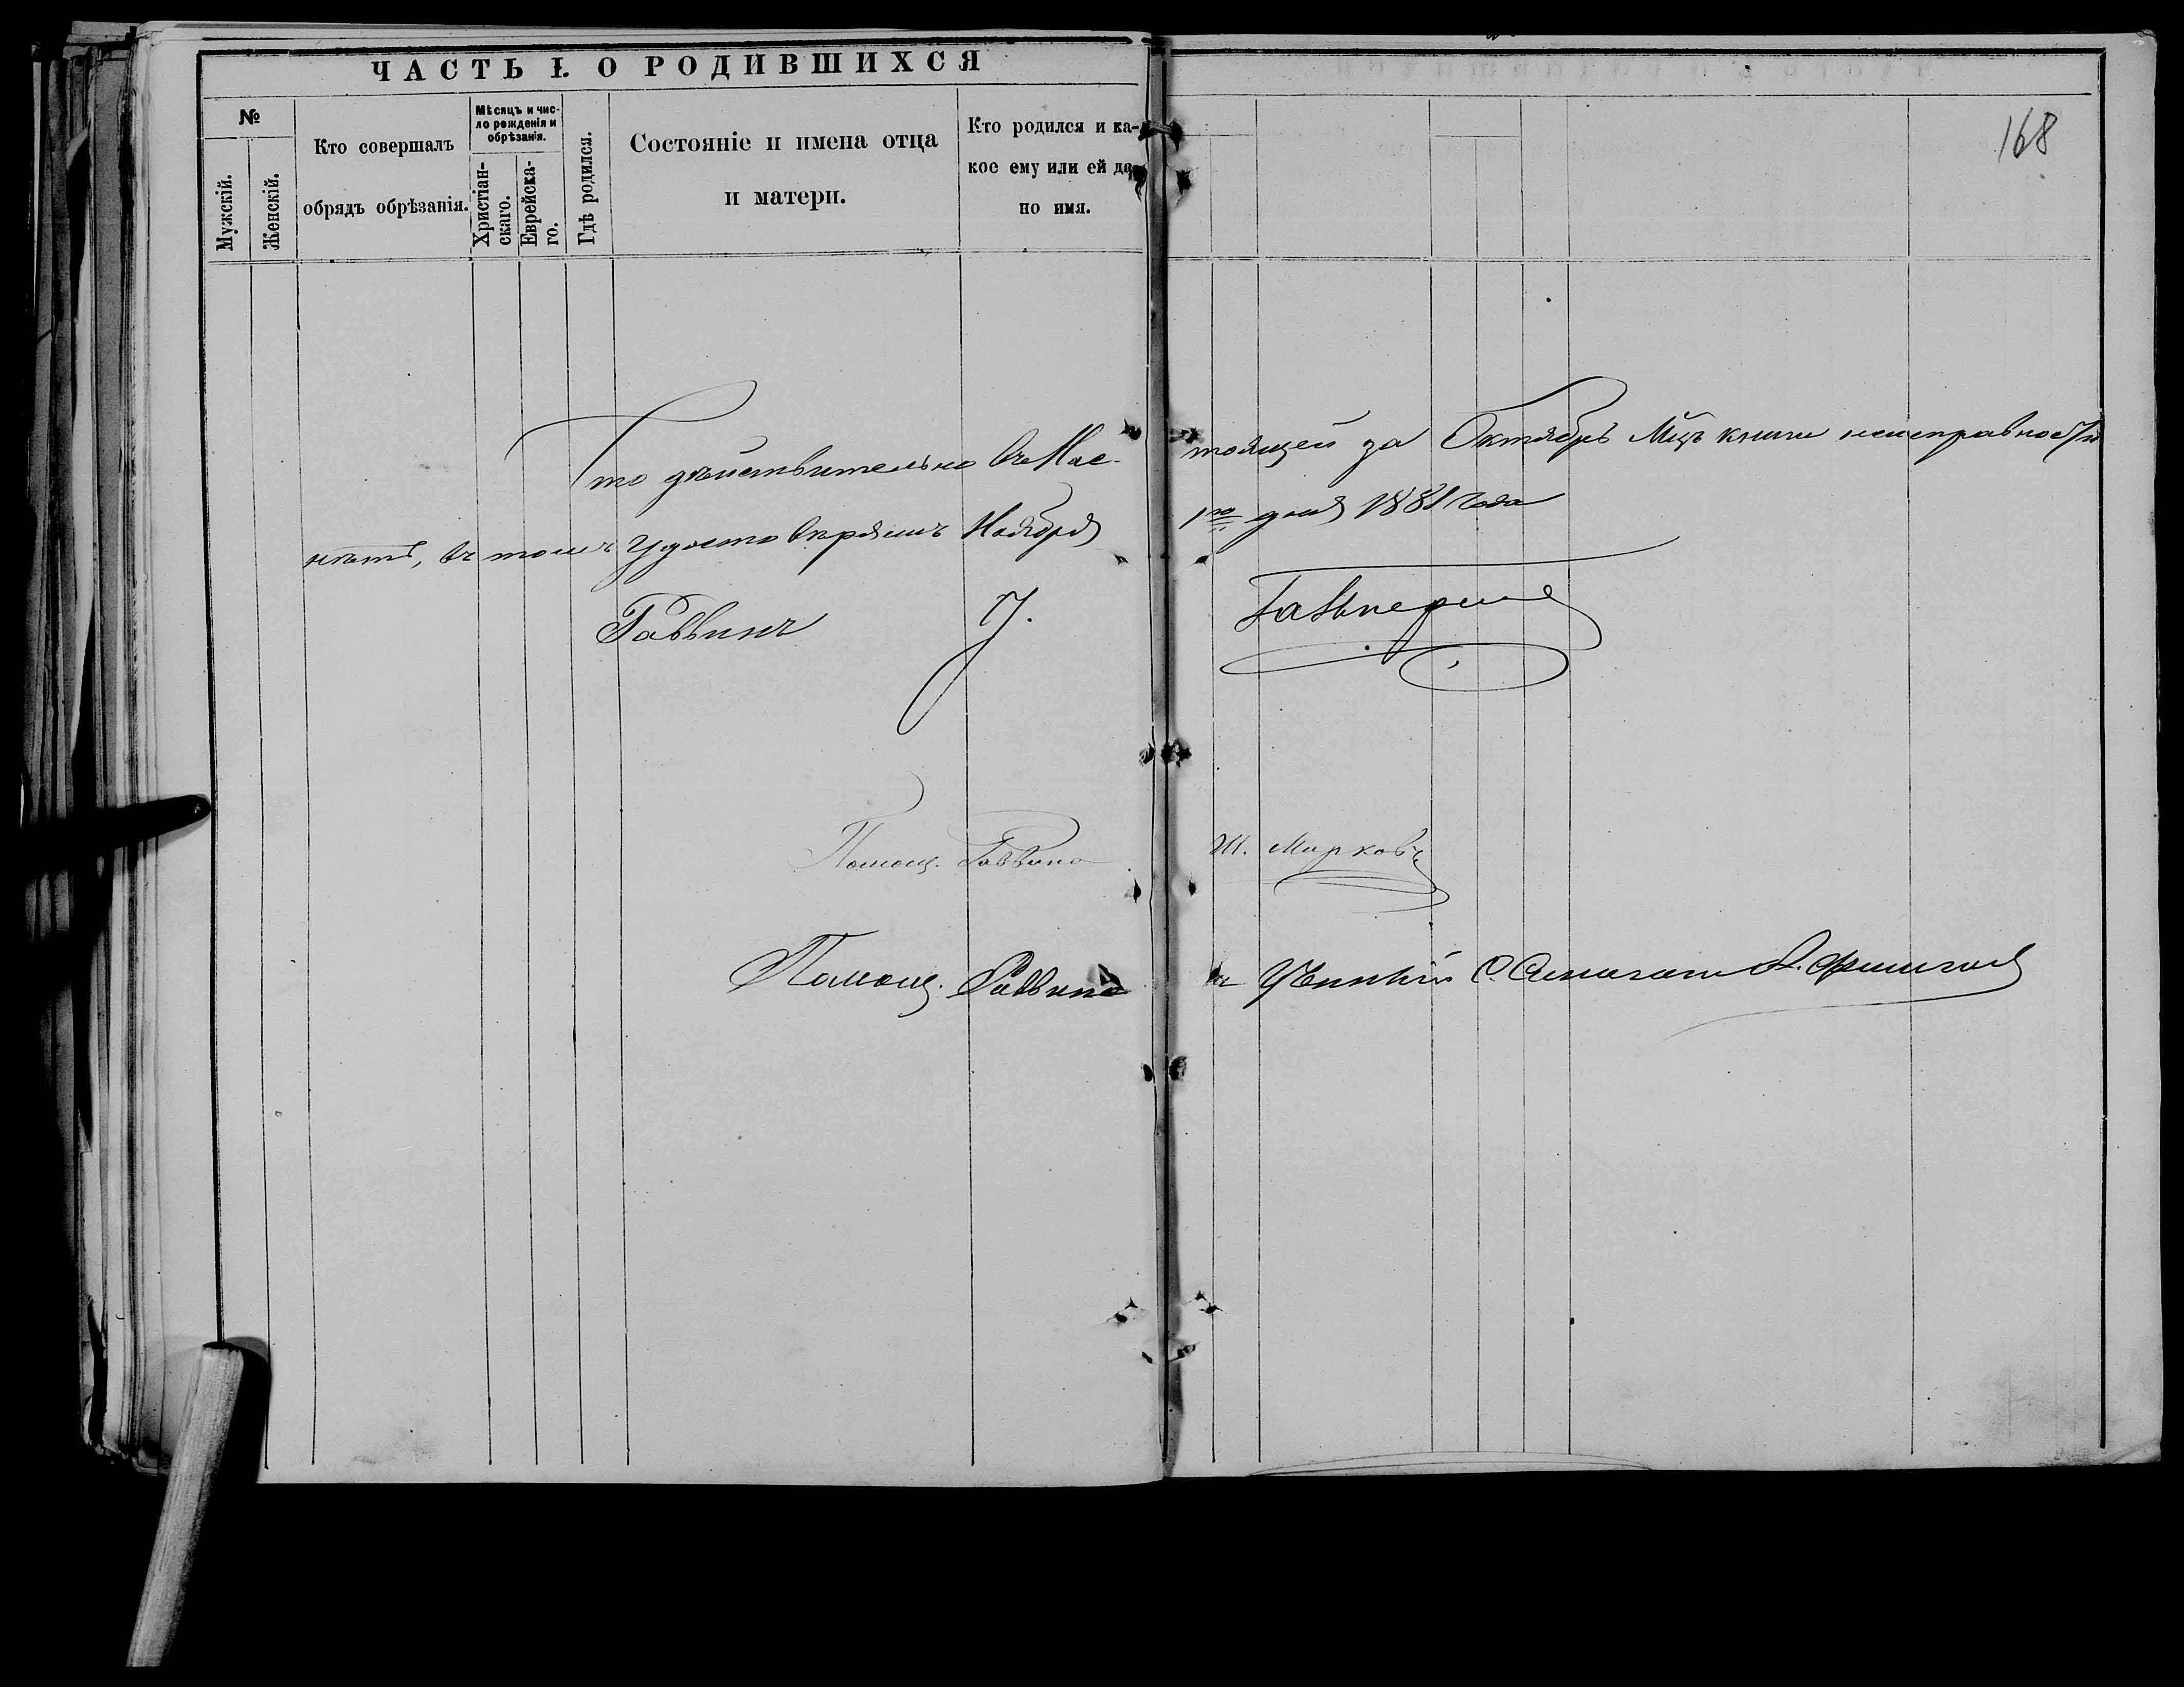 ЧАСТЬ I. О РОДИВШИХСЯ
№
Мужскій.
Женскій.
Кто совершалъ
обрядъ обрѣзанія.
Мѣсяцъ и чис-
ло рожденія и
обрѣзанія.
Христіан-
скаго.
Еврейска-
го.
Гдѣ родился.
Состояніе и имена отца
и матери.
Кто родился и ка-
кое ему или ей да
но имя.
168
Что дѣйствительно въ Нас- тоящей за Октябрь Мцъ книги неисправности
нѣтъ, въ томъ удостовѣряемъ Ноября 1го дня 1881 года
Раввинъ У. Гальперинъ
Помощ. Раввина Ш. Марковъ
Помощ. Раввина